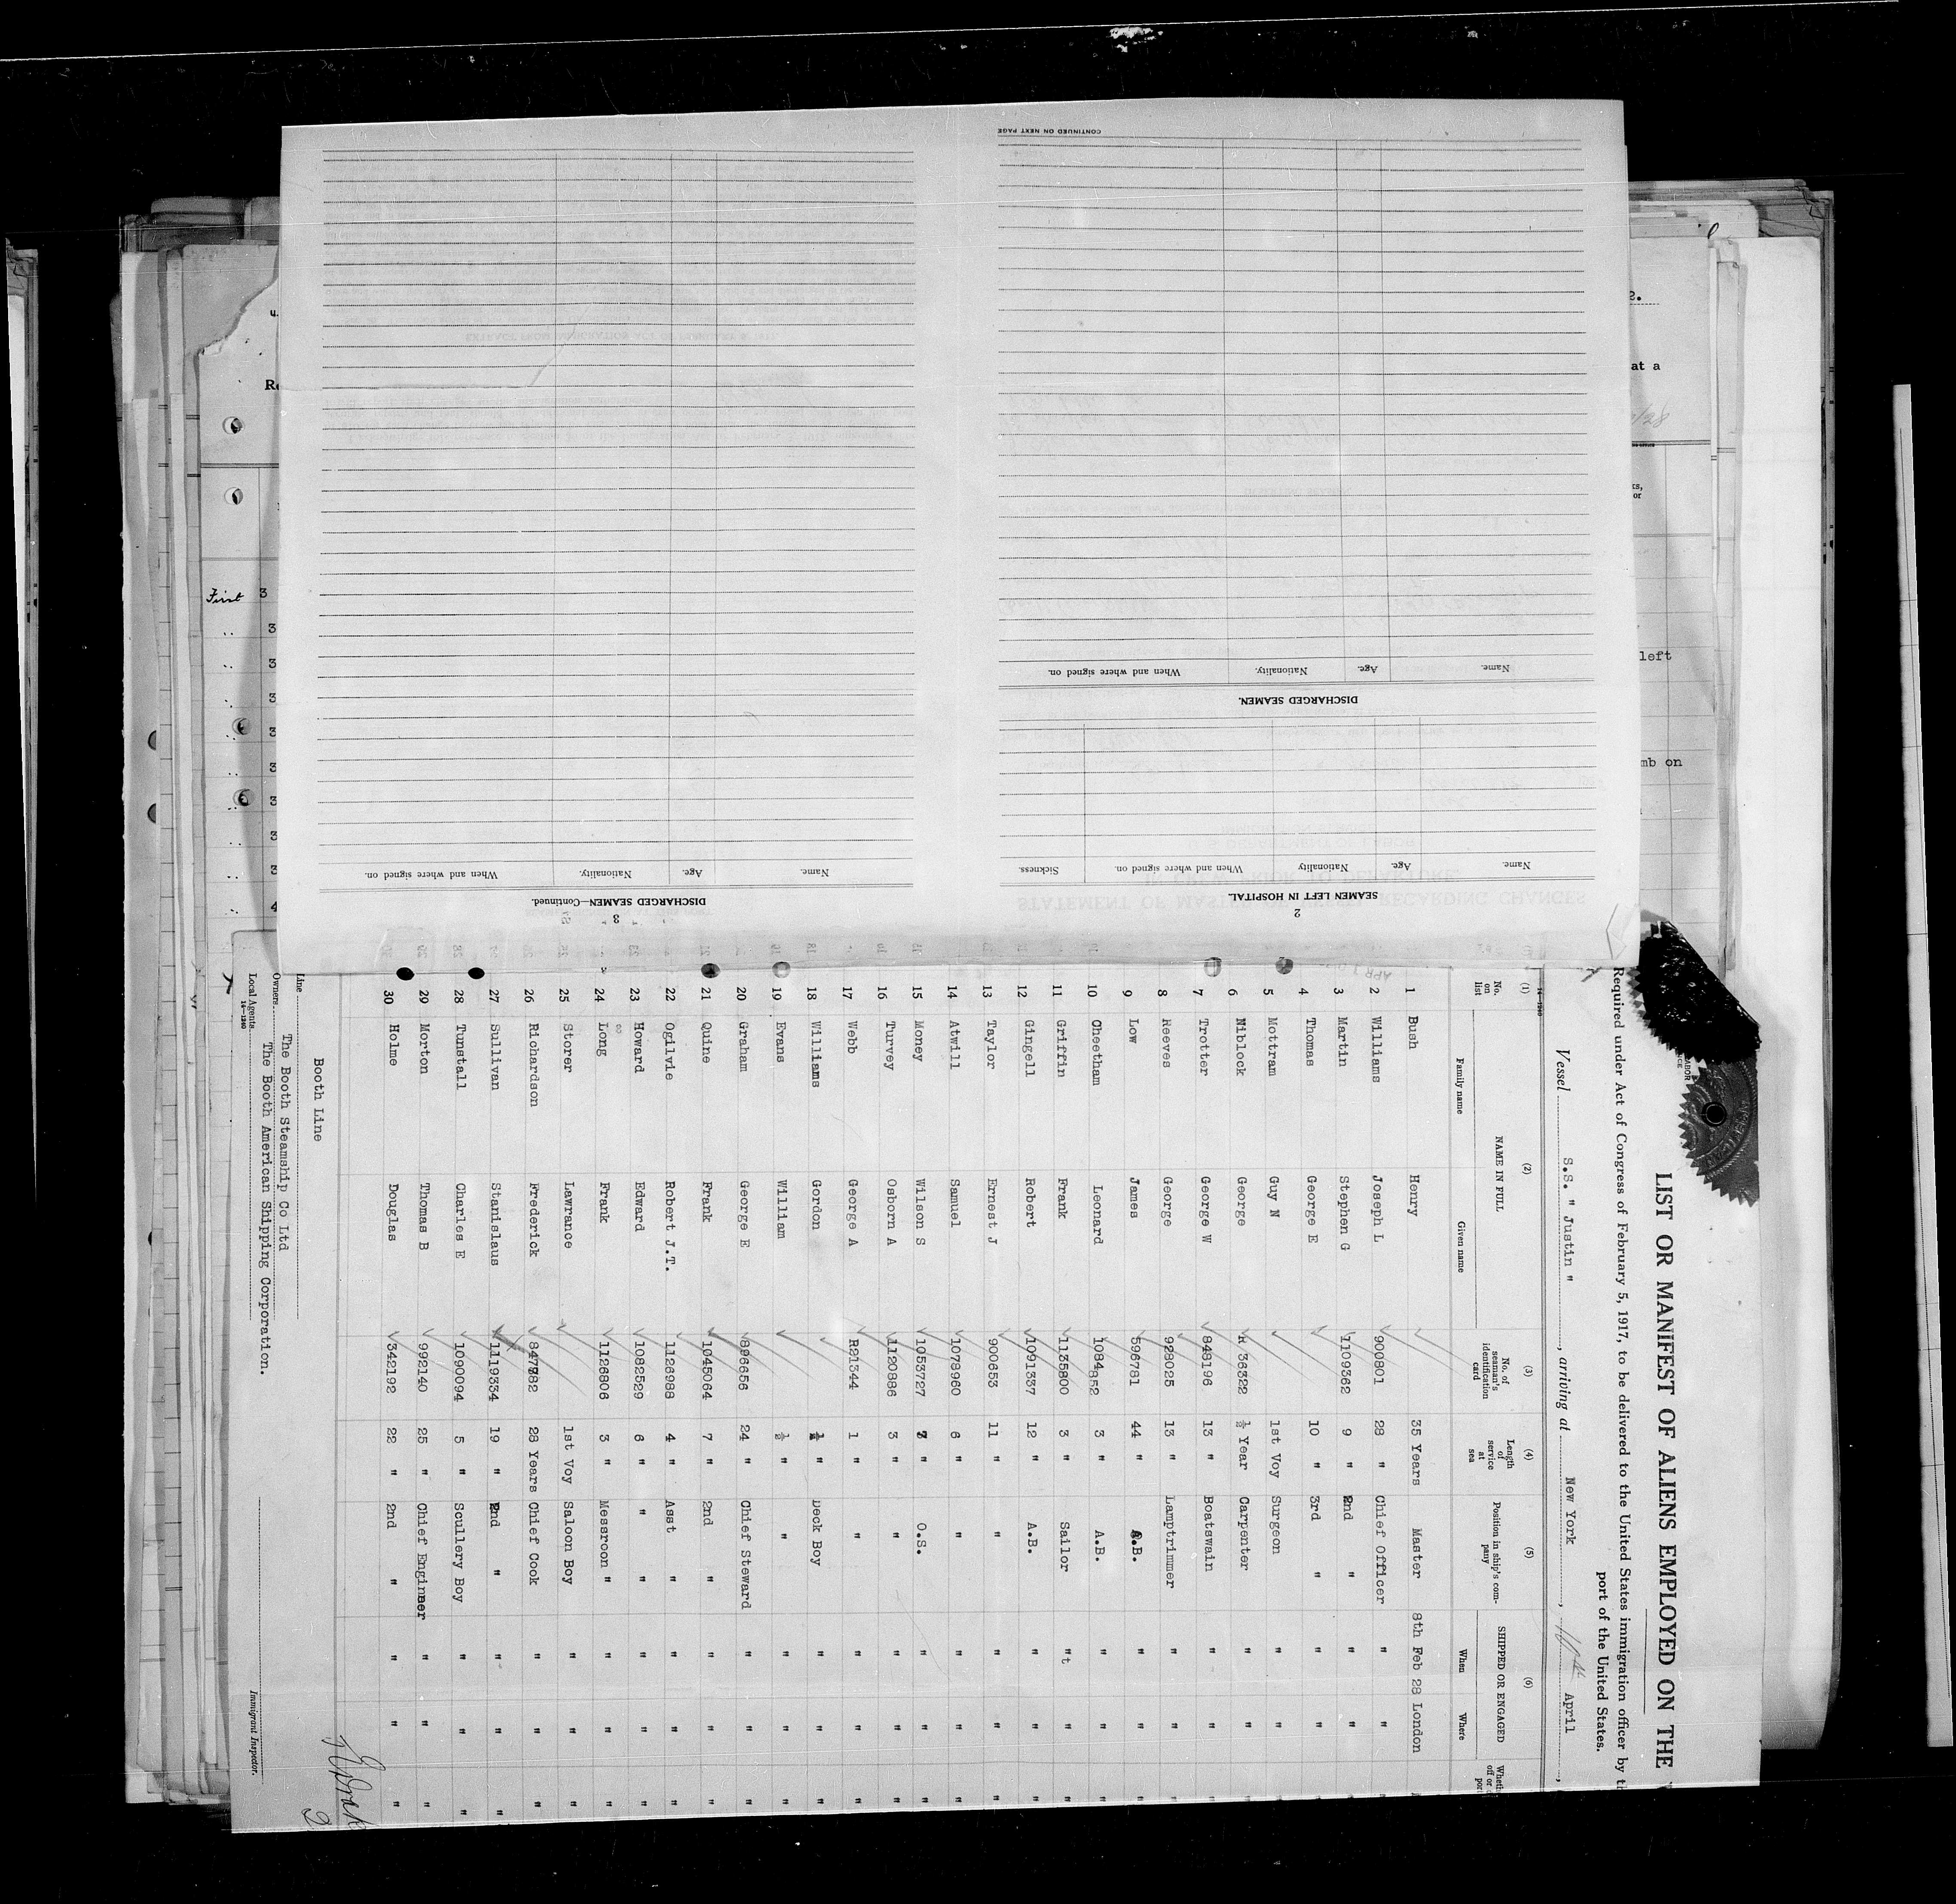 CONTINUED ON NEXT PAGE
Name.
Age.
Nationality.
When and where signed on.
DISCHARGED SEAMEN.
Name.
Age.
Nationality.
When and where signed on.
Sickness.
SEAMEN LEFT IN HOSPITAL.
2
Name.
Age.
Nationality.
When and where signed on.
DISCHARGED SEAMEN—Continued.
3
at a
left
mb on
First
LIST OR MANIFEST OF ALIENS EMPLOYED ON THE
Required under Act of Congress of February 5, 1917, to be delivered to the United States immigration officer by th
port of the United States.
Vessel S.S. " Justin ", arriving at New York, April
(1) (2) (3) (4) (5) (6)
No. on list NAME IN FULL Family name Given name No. of seaman's identification card Length of service at sea Position in ship's company SHIPPED OR ENGAGED When Where
1 Bush Henry 35 Years Master 8th Feb 28 London
2 Williams Joseph L 900801 28 " Chief Officer " " "
3 Martin Stephen G 1109362 9 " 2nd " " " "
4 Thomas George E 10 " 3rd " " " "
5 Mottram Guy N 1st Voy Surgeon " " "
6 Niblock George R 36322 ½ Year Carpenter " " "
7 Trotter George W 848196 13 " Boatswain " " "
8 Reeves George 928025 13 " Lamptrimmer " " "
9 Low James 596781 44 " A.B. " " "
10 Cheetham Leonard 1084852 3 " A.B. " " "
11 Griffin Frank 1135800 3 " Sailor "t " "
12 Gingell Robert 1091337 12 " A.B. " " "
13 Taylor Ernest J 900653 11 " " " " "
14 Atwill Samuel 1078960 6 " " " " "
15 Money Wilson S 1053727 " O.S. " " "
16 Turvey Osborn A 1120886 3 " " " " "
17 Webb George A R21344 1 " " " " "
18 Williams Gordon " Deck Boy " " "
19 Evans William ½ " " " " "
20 Graham George E 896656 24 " Chief Steward " " "
21 Quine Frank 1045064 7 " 2nd " " " "
22 Ogilvie Robert J.T. 1126988 4 " Asst " " " "
23 Howard Edward 1082529 6 " " " " " "
24 Long Frank 1126806 3 " Messroon " " " "
25 Storer Lawrance 1st Voy Saloon Boy " " "
26 Richardson Frederick 847782 28 Years Chief Cook " " "
27 Sullivan Stanislaus 1119334 19 " 2nd " " " "
28 Tunstall Charles E 1090094 5 " Scullery Boy " " "
29 Morton Thomas B 992140 25 " Chief Enginner " " "
30 Holme Douglas 342192 22 " 2nd " " " "
Line Booth Line
Owners The Booth Steamship Co Ltd
Local Agents The Booth American Shipping Corporation.
Immigrant Inspector.